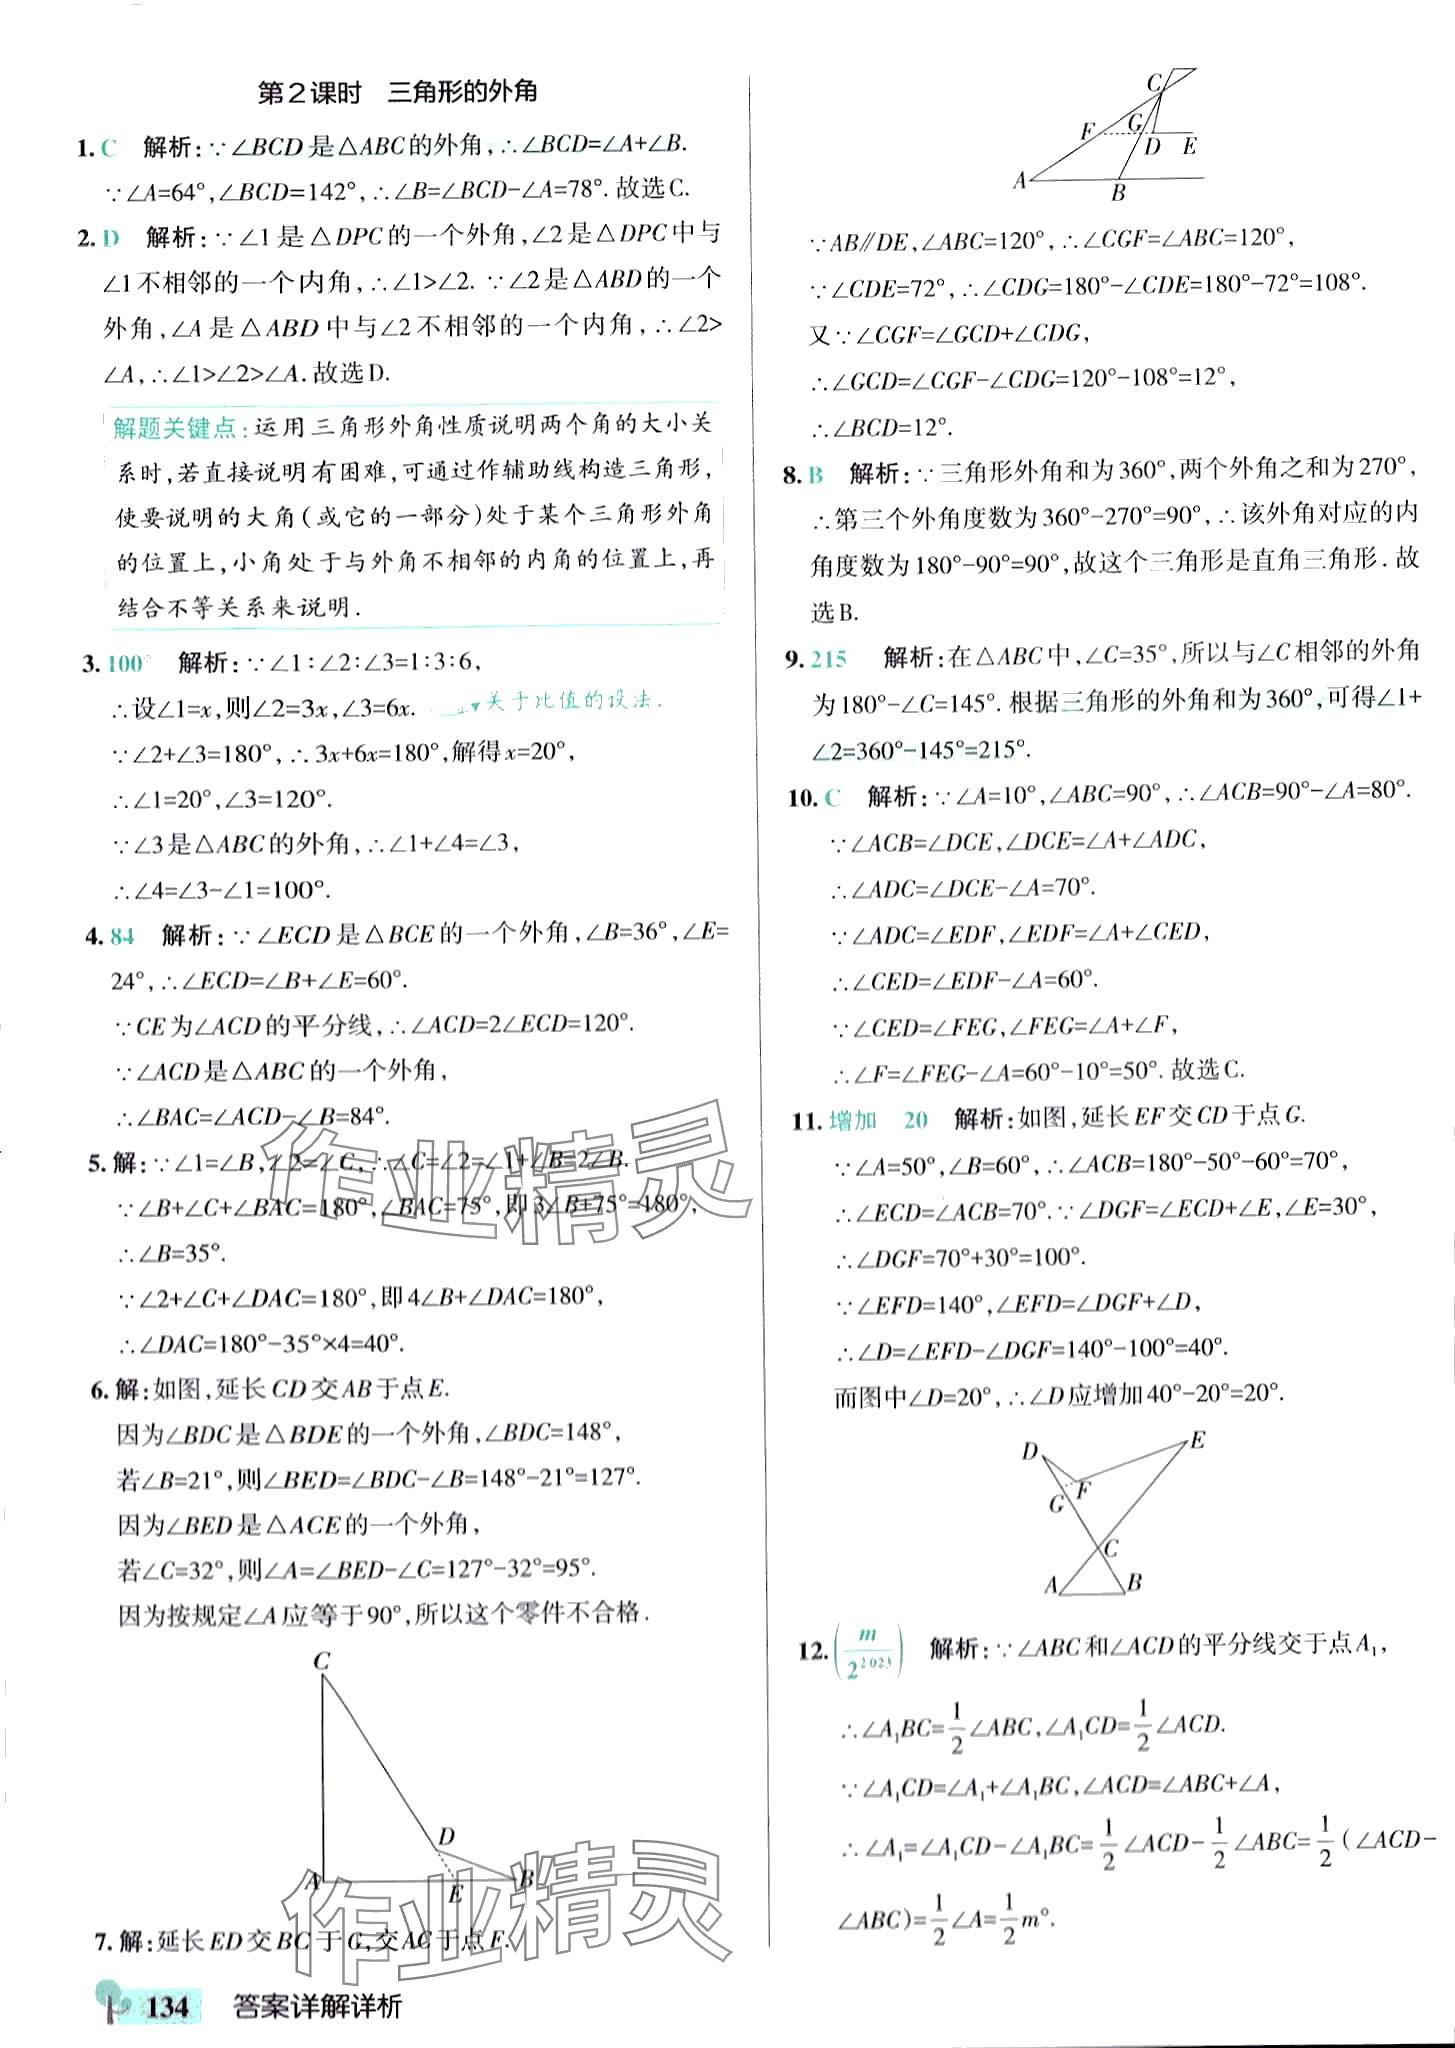 第2课时　三角形的外角
1. C　解析:∵∠BCD是△ABC的外角,∴∠BCD=∠A+∠B.
∵∠A=64°,∠BCD=142°,∴∠B=∠BCD-∠A=78°.故选C.
2. D　解析:∵∠1是△DPC的一个外角,∠2是△DPC中与
∠1不相邻的一个内角,∴∠1>∠2. ∵∠2是△ABD的一个
外角,∠A是△ABD中与∠2不相邻的一个内角,∴∠2>
∠A,∴∠1>∠2>∠A.故选D.
解题关键点:运用三角形外角性质说明两个角的大小关
系时,若直接说明有困难,可通过作辅助线构造三角形,
使要说明的大角(或它的一部分)处于某个三角形外角
的位置上,小角处于与外角不相邻的内角的位置上,再
结合不等关系来说明.
3. 100°　解析:∵∠1∶∠2∶∠3=1∶3∶6,
∴设∠1=x,则∠2=3x,∠3=6x. 关于比值的设法.
∵∠2+∠3=180°,∴3x+6x=180°,解得x=20°,
∴∠1=20°,∠3=120°.
∵∠3是△ABC的外角,∴∠1+∠4=∠3,
∴∠4=∠3-∠1=100°.
4. 84　解析:∵∠ECD是△BCE的一个外角,∠B=36°,∠E=
24°,∴∠ECD=∠B+∠E=60°.
∵CE为∠ACD的平分线,∴∠ACD=2∠ECD=120°.
∵∠ACD是△ABC的一个外角,
∴∠BAC=∠ACD-∠B=84°.
5. 解:∵∠1=∠B,∠2=∠C,∴∠C=∠2=∠1+∠B=2∠B.
∵∠B+∠C+∠BAC=180°,∠BAC=75°,即3∠B+75°=180°,
∴∠B=35°.
∵∠2+∠C+∠DAC=180°,即4∠B+∠DAC=180°,
∴∠DAC=180°-35°×4=40°.
6. 解:如图,延长CD交AB于点E.
因为∠BDC是△BDE的一个外角,∠BDC=148°,
若∠B=21°,则∠BED=∠BDC-∠B=148°-21°=127°.
因为∠BED是△ACE的一个外角,
若∠C=32°,则∠A=∠BED-∠C=127°-32°=95°.
因为按规定∠A应等于90°,所以这个零件不合格.
C
D
A
E
B
7. 解:延长ED交BC于G,交AC于点F.
134　答案详解详析
C
F
G
D
E
A
B
∵AB∥DE,∠ABC=120°,∴∠CGF=∠ABC=120°,
∵∠CDE=72°,∴∠CDG=180°-∠CDE=180°-72°=108°.
又∵∠CGF=∠GCD+∠CDG,
∴∠GCD=∠CGF-∠CDG=120°-108°=12°,
∴∠BCD=12°.
8. B　解析:∵三角形外角和为360°,两个外角之和为270°,
∴第三个外角度数为360°-270°=90°,∴该外角对应的内
角度数为180°-90°=90°,故这个三角形是直角三角形.故
选B.
9. 215　解析:在△ABC中,∠C=35°,所以与∠C相邻的外角
为180°-∠C=145°.根据三角形的外角和为360°,可得∠1+
∠2=360°-145°=215°.
10. C　解析:∵∠A=10°,∠ABC=90°,∴∠ACB=90°-∠A=80°.
∵∠ACB=∠DCE,∠DCE=∠A+∠ADC,
∴∠ADC=∠DCE-∠A=70°.
∵∠ADC=∠EDF,∠EDF=∠A+∠CED,
∴∠CED=∠EDF-∠A=60°.
∵∠CED=∠FEG,∠FEG=∠A+∠F,
∴∠F=∠FEG-∠A=60°-10°=50°.故选C.
11. 增加　20　解析:如图,延长EF交CD于点G.
∵∠A=50°,∠B=60°,∴∠ACB=180°-50°-60°=70°,
∴∠ECD=∠ACB=70°.∵∠DGF=∠ECD+∠E,∠E=30°,
∴∠DGF=70°+30°=100°.
∵∠EFD=140°,∠EFD=∠DGF+∠D,
∴∠D=∠EFD-∠DGF=140°-100°=40°.
而图中∠D=20°,∴∠D应增加40°-20°=20°.
D
E
G
F
C
A
B
12. (m/2²⁰²³)　解析:∵∠ABC和∠ACD的平分线交于点A₁,
∴∠A₁BC=1/2∠ABC,∠A₁CD=1/2∠ACD.
∵∠A₁CD=∠A₁+∠A₁BC,∠ACD=∠ABC+∠A,
∴∠A₁=∠A₁CD-∠A₁BC=1/2∠ACD-1/2∠ABC=1/2(∠ACD-
∠ABC)=1/2∠A=1/2m°.
作业精灵
作业精灵